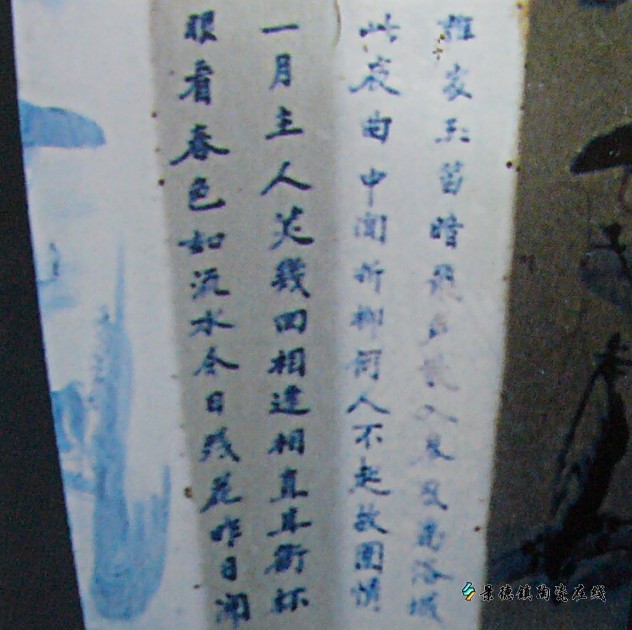 誰家玉笛暗飛声散入春风滿洛城
此夜曲中聞折柳何人不起故園情
一月主人笑幾回相逢相直且銜杯
眼看春色如流水今日残花昨日開
景德镇陶瓷在线